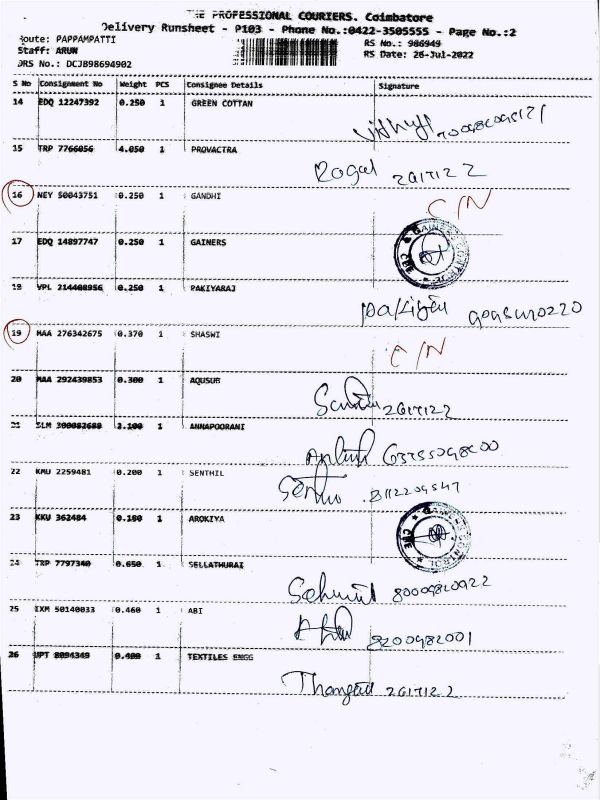 THE PROFESSIONAL COURIERS. Coimbatore
Delivery Runsheet - P103 - Phone No.:0422-3505555 - Page No.:2
Route: PAPPAMPATTI
Staff: ARUN
DRS No.: DCJB98694902
RS No.: 986949
RS Date: 26-Jul-2022
S No Consignment No Weight PCS Consignee Details Signature
14 EDQ 12247392 0.250 1 GREEN COTTAN
15 TRP 7766056 4.050 1 PROVACTRA
26/7/22
16 NEY 50043751 0.250 1 GANDHI
C/N
17 EDQ 14897747 0.250 1 GAINERS
18 VPL 214408956 0.250 1 PAKIYARAJ
19 MAA 276342675 0.370 1 SHASWI
C/N
20 MAA 292439853 0.300 1 AQUSUB
26/7/22
21 SLM 300082680 2.100 1 ANNAPOORANI
22 KMU 2259481 0.200 1 SENTHIL
8112209547
23 KKU 362484 0.190 1 AROKIYA
24 TRP 7797340 0.650 1 SELLATHURAI
80009820922
25 IXM 50140033 0.460 1 ABI
8200982001
26 UPT 8094349 0.400 1 TEXTILES ENGG
26/7/22